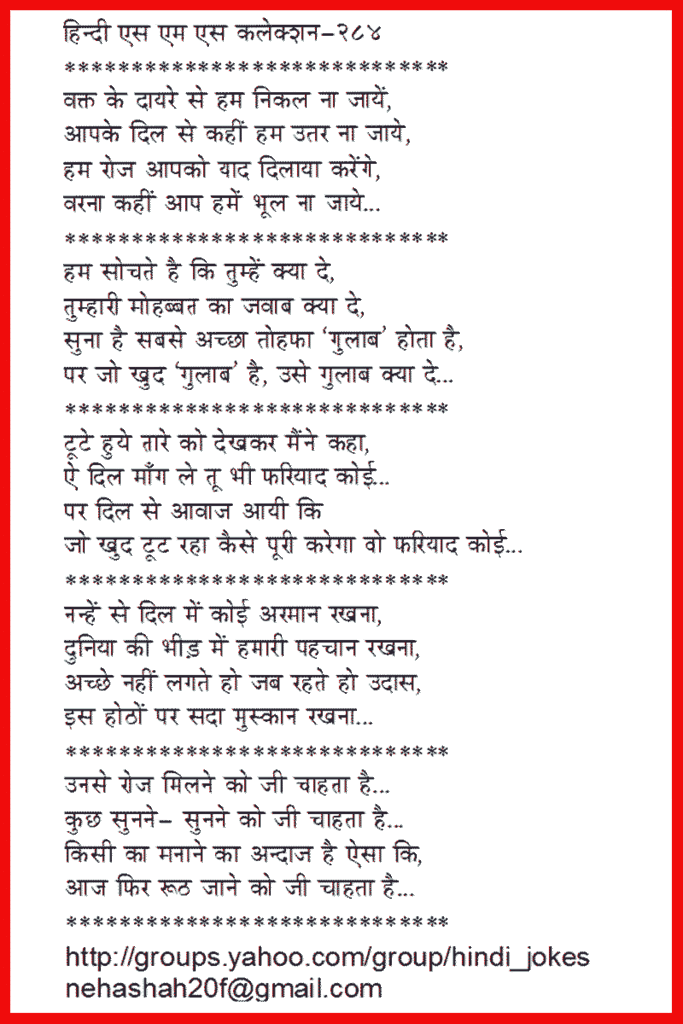 हिन्दी एस एम एस कलेक्शन-२८४
*****************************
वक्त के दायरे से हम निकल ना जायें,
आपके दिल से कहीं हम उतर ना जाये,
हम रोज आपको याद दिलाया करेंगे,
वरना कहीं आप हमें भूल ना जाये...
*****************************
हम सोचते है कि तुम्हें क्या दे,
तुम्हारी मोहब्बत का जवाब क्या दे,
सुना है सबसे अच्छा तोहफा ‘गुलाब’ होता है,
पर जो खुद ‘गुलाब’ है, उसे गुलाब क्या दे...
*****************************
टूटे हुये तारे को देखकर मैंने कहा,
ऐ दिल माँग ले तू भी फरियाद कोई...
पर दिल से आवाज आयी कि
जो खुद टूट रहा कैसे पूरी करेगा वो फरियाद कोई...
*****************************
नन्हें से दिल में कोई अरमान रखना,
दुनिया की भीड़ में हमारी पहचान रखना,
अच्छे नहीं लगते हो जब रहते हो उदास,
इस होठों पर सदा मुस्कान रखना...
*****************************
उनसे रोज मिलने को जी चाहता है...
कुछ सुनने- सुनने को जी चाहता है...
किसी का मनाने का अन्दाज है ऐसा कि,
आज फिर रूठ जाने को जी चाहता है...
*****************************
http://groups.yahoo.com/group/hindi_jokes
nehashah20f@gmail.com